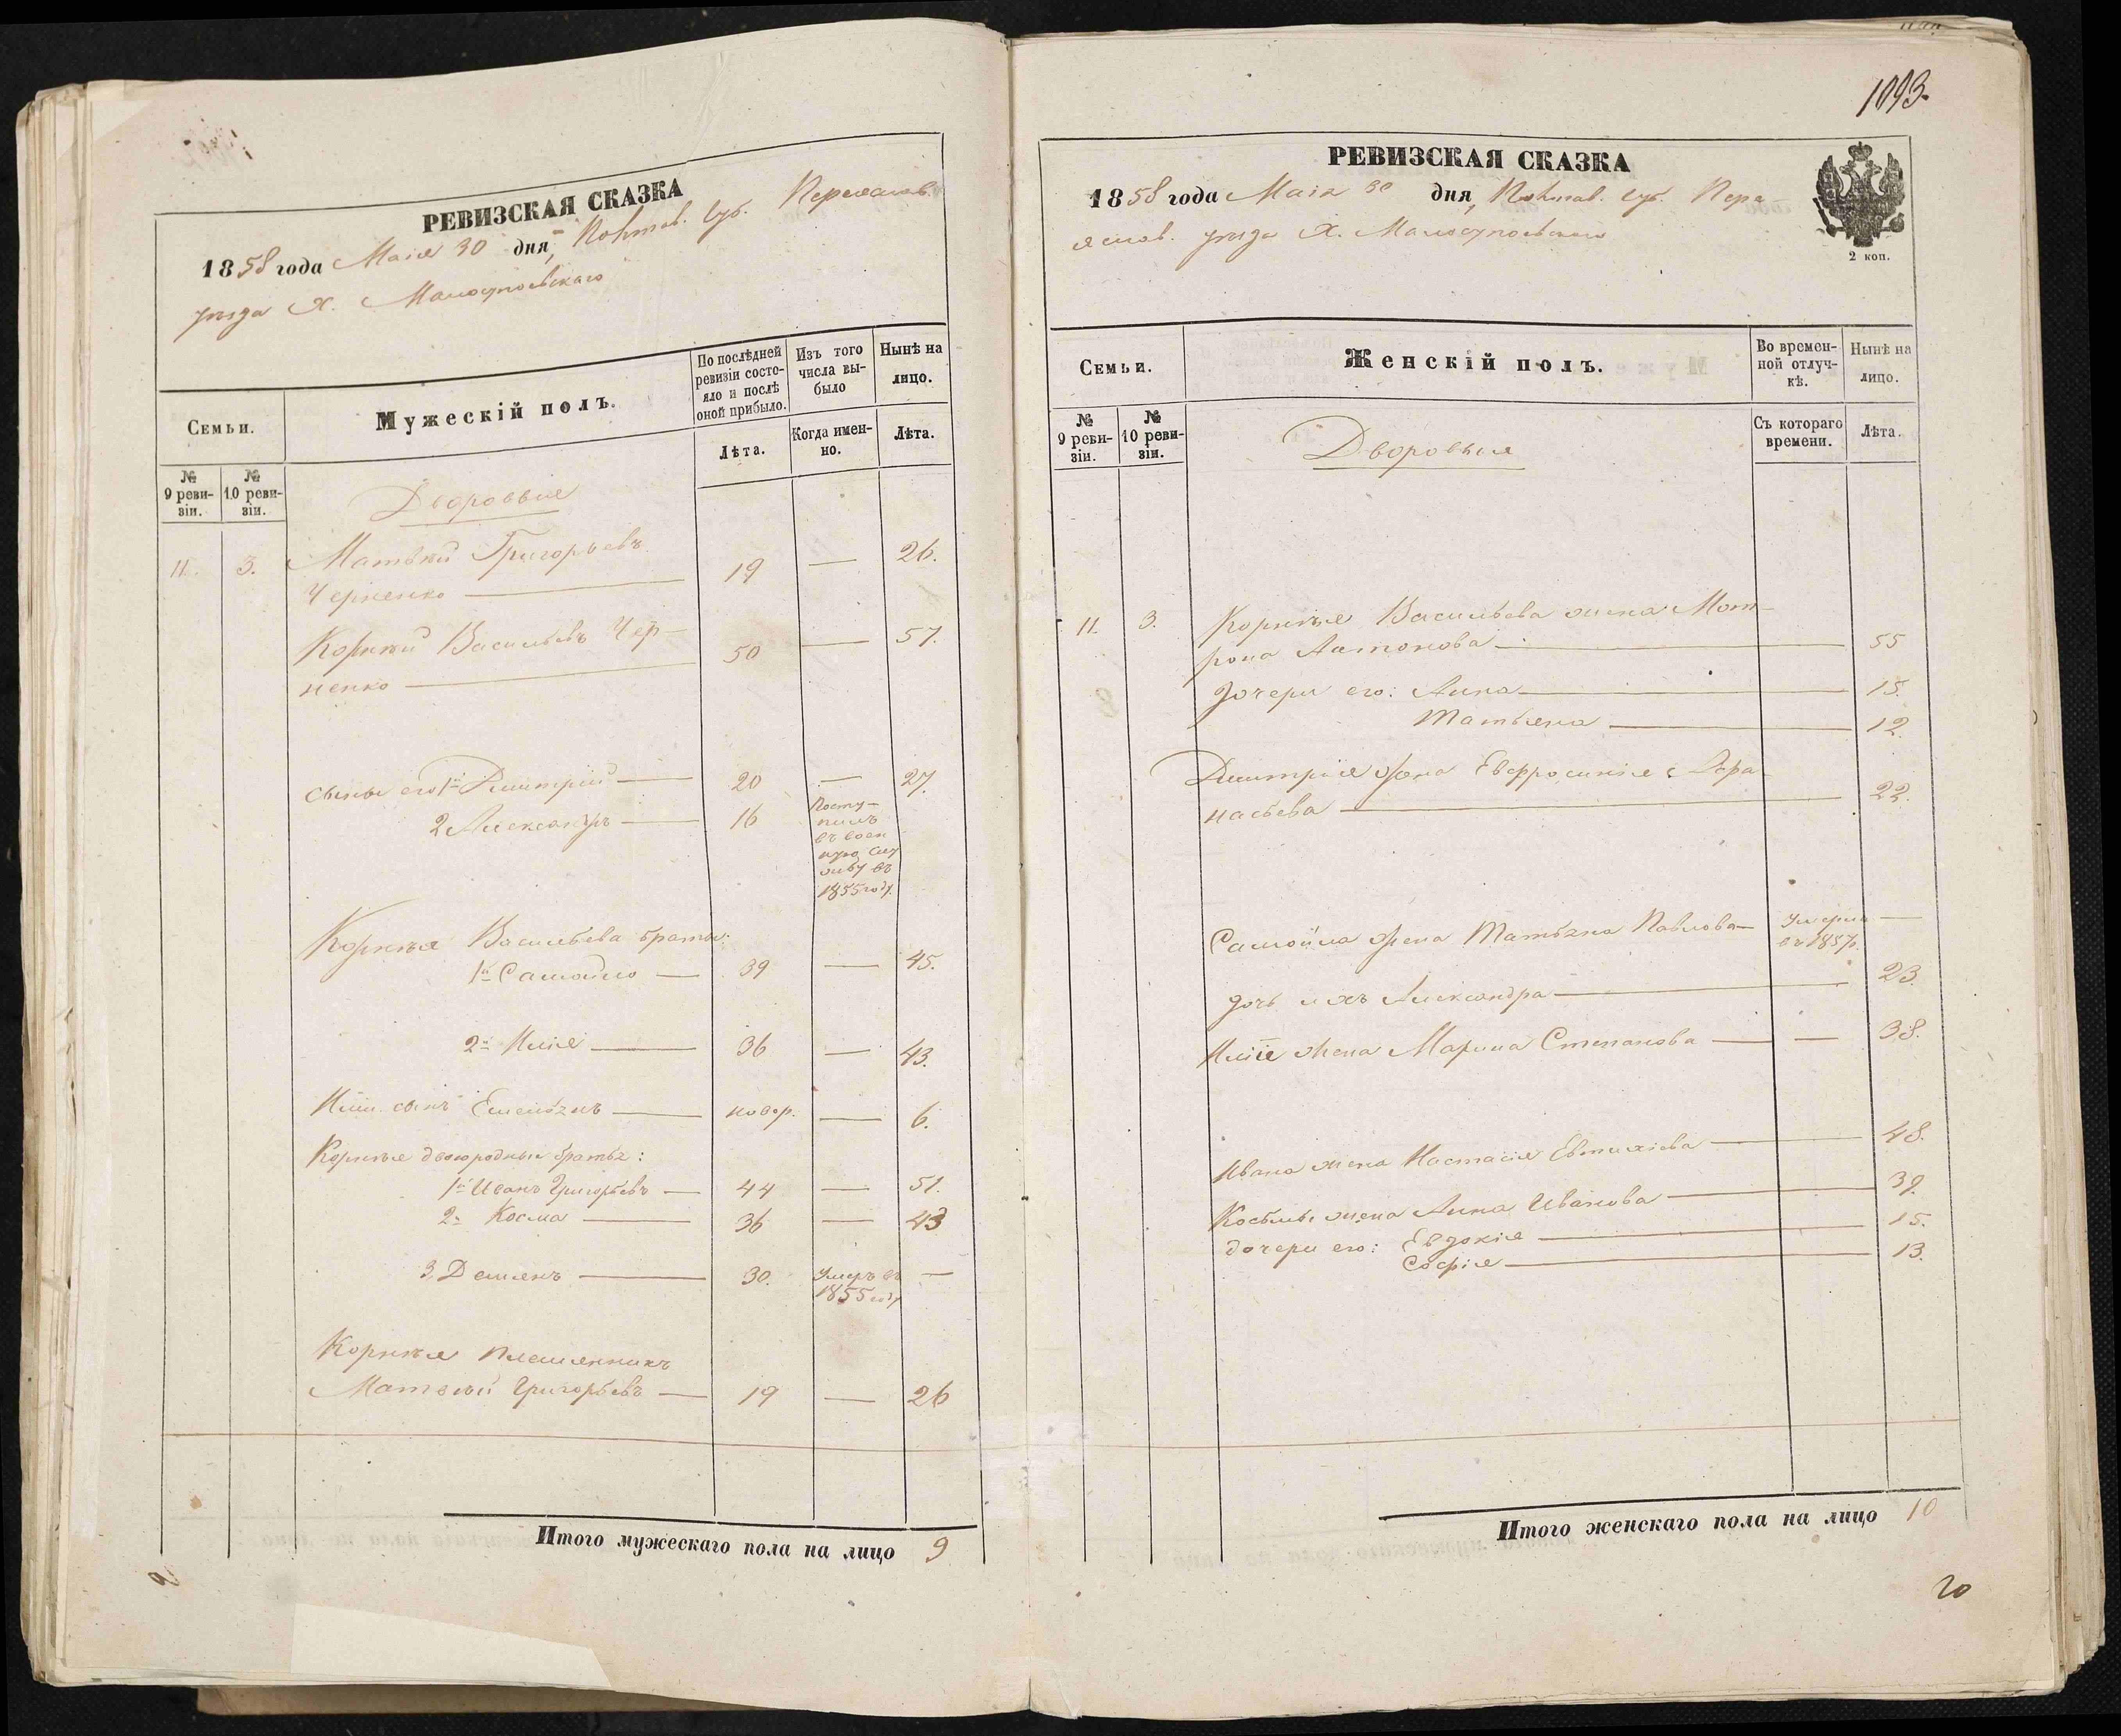 РЕВИЗСКАЯ СКАЗКА
1858 года Маія 30 дня, Полтав. губ. Переяслав.
уѣзда Х. Малосупоевскаго
Семьи.
Мужескій полъ.
По послѣдней ревизіи состояло и послѣ оной прибыло.
Изъ того числа выбыло
Нынѣ на лицо.
№ 9 ревизіи.
№ 10 ревизіи.
Лѣта.
Когда именно.
Лѣта.
Дворовыя
11. 3. Матвѣй Григорьевъ
Черненко — 19 — 26.
Корнѣй Васильевъ Чер-
ненко — 50 — 57.
сыны его 1й Дмитрій — 20 — 27.
2 Александръ — 16 Посту-
пилъ
въ воен
ную слу
жбу въ
1855 году.
Корнѣя Васильева братья:
1й Самойло — 39 — 45.
2й Илія — 36 — 43.
Иліи сынъ Емельянъ — новор. — 6.
Корнѣя двоюродные братья:
1й Иванъ Григорьевъ — 44 — 51.
2й Косма — 36 — 43
3. Демянъ — 30. Умеръ въ —
1855 году
Корнѣя племянникъ
Матвѣй Григорьевъ — 19 — 26
Итого мужескаго пола на лицо 9
1093.
РЕВИЗСКАЯ СКАЗКА
1858 года Маія 30 дня, Полтав. губ. Пере
яслов. уѣзда Х. Малосупоевскаго
2 коп.
Семьи.
Женскій полъ.
Во временной отлучкѣ.
Нынѣ на лицо.
№ 9 ревизіи.
№ 10 ревизіи.
Съ котораго времени.
Лѣта.
Дворовыя
11. 3. Корнѣя Васильева жена Мот-
рона Антонова — 55
дочери его: Анна — 15.
Татьяна — 12.
Дмитрія жена Евфросинія Афа-
насьева — 22.
Самойла жена Татьяна Павлова — Умерла —
въ 1857г.
дочь ихъ Александра — 23.
Иліи жена Марина Степанова — — 38.
Ивана жена Настасія Евтихіева — 48.
Косьмы жена Анна Иванова — 39.
дочери его: Евдокія — 15.
Софія — 13.
Итого женскаго пола на лицо 10
20